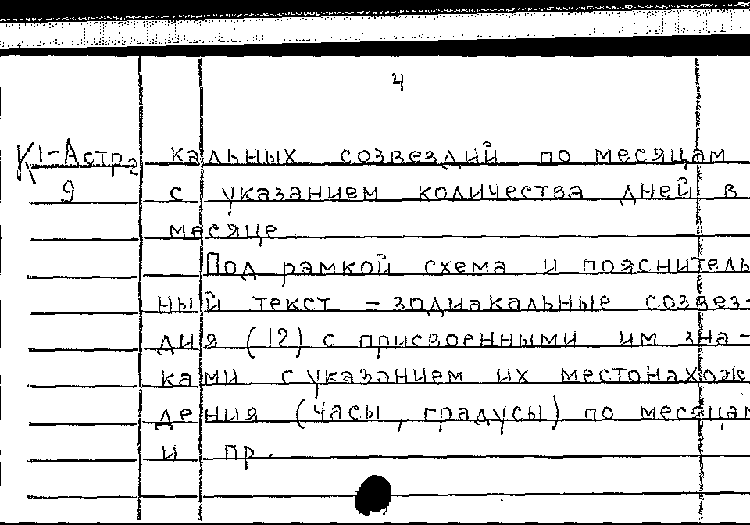 4
К1-Астр2 кальных созвездий по месяцам
9 с указанием количества дней в
месяце
Под рамкой схема и пояснитель
ный текст - зодиакальные созвез-
дия (12) с присвоенными им зна-
ками с указанием их местонахож
дения (часы, градусы) по месяцам
и пр.